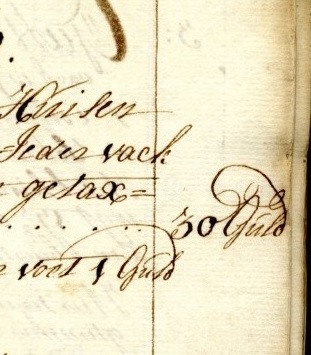 Huisen
Ieder vack
getax=
..... 30 Guld
voet 1 Guld